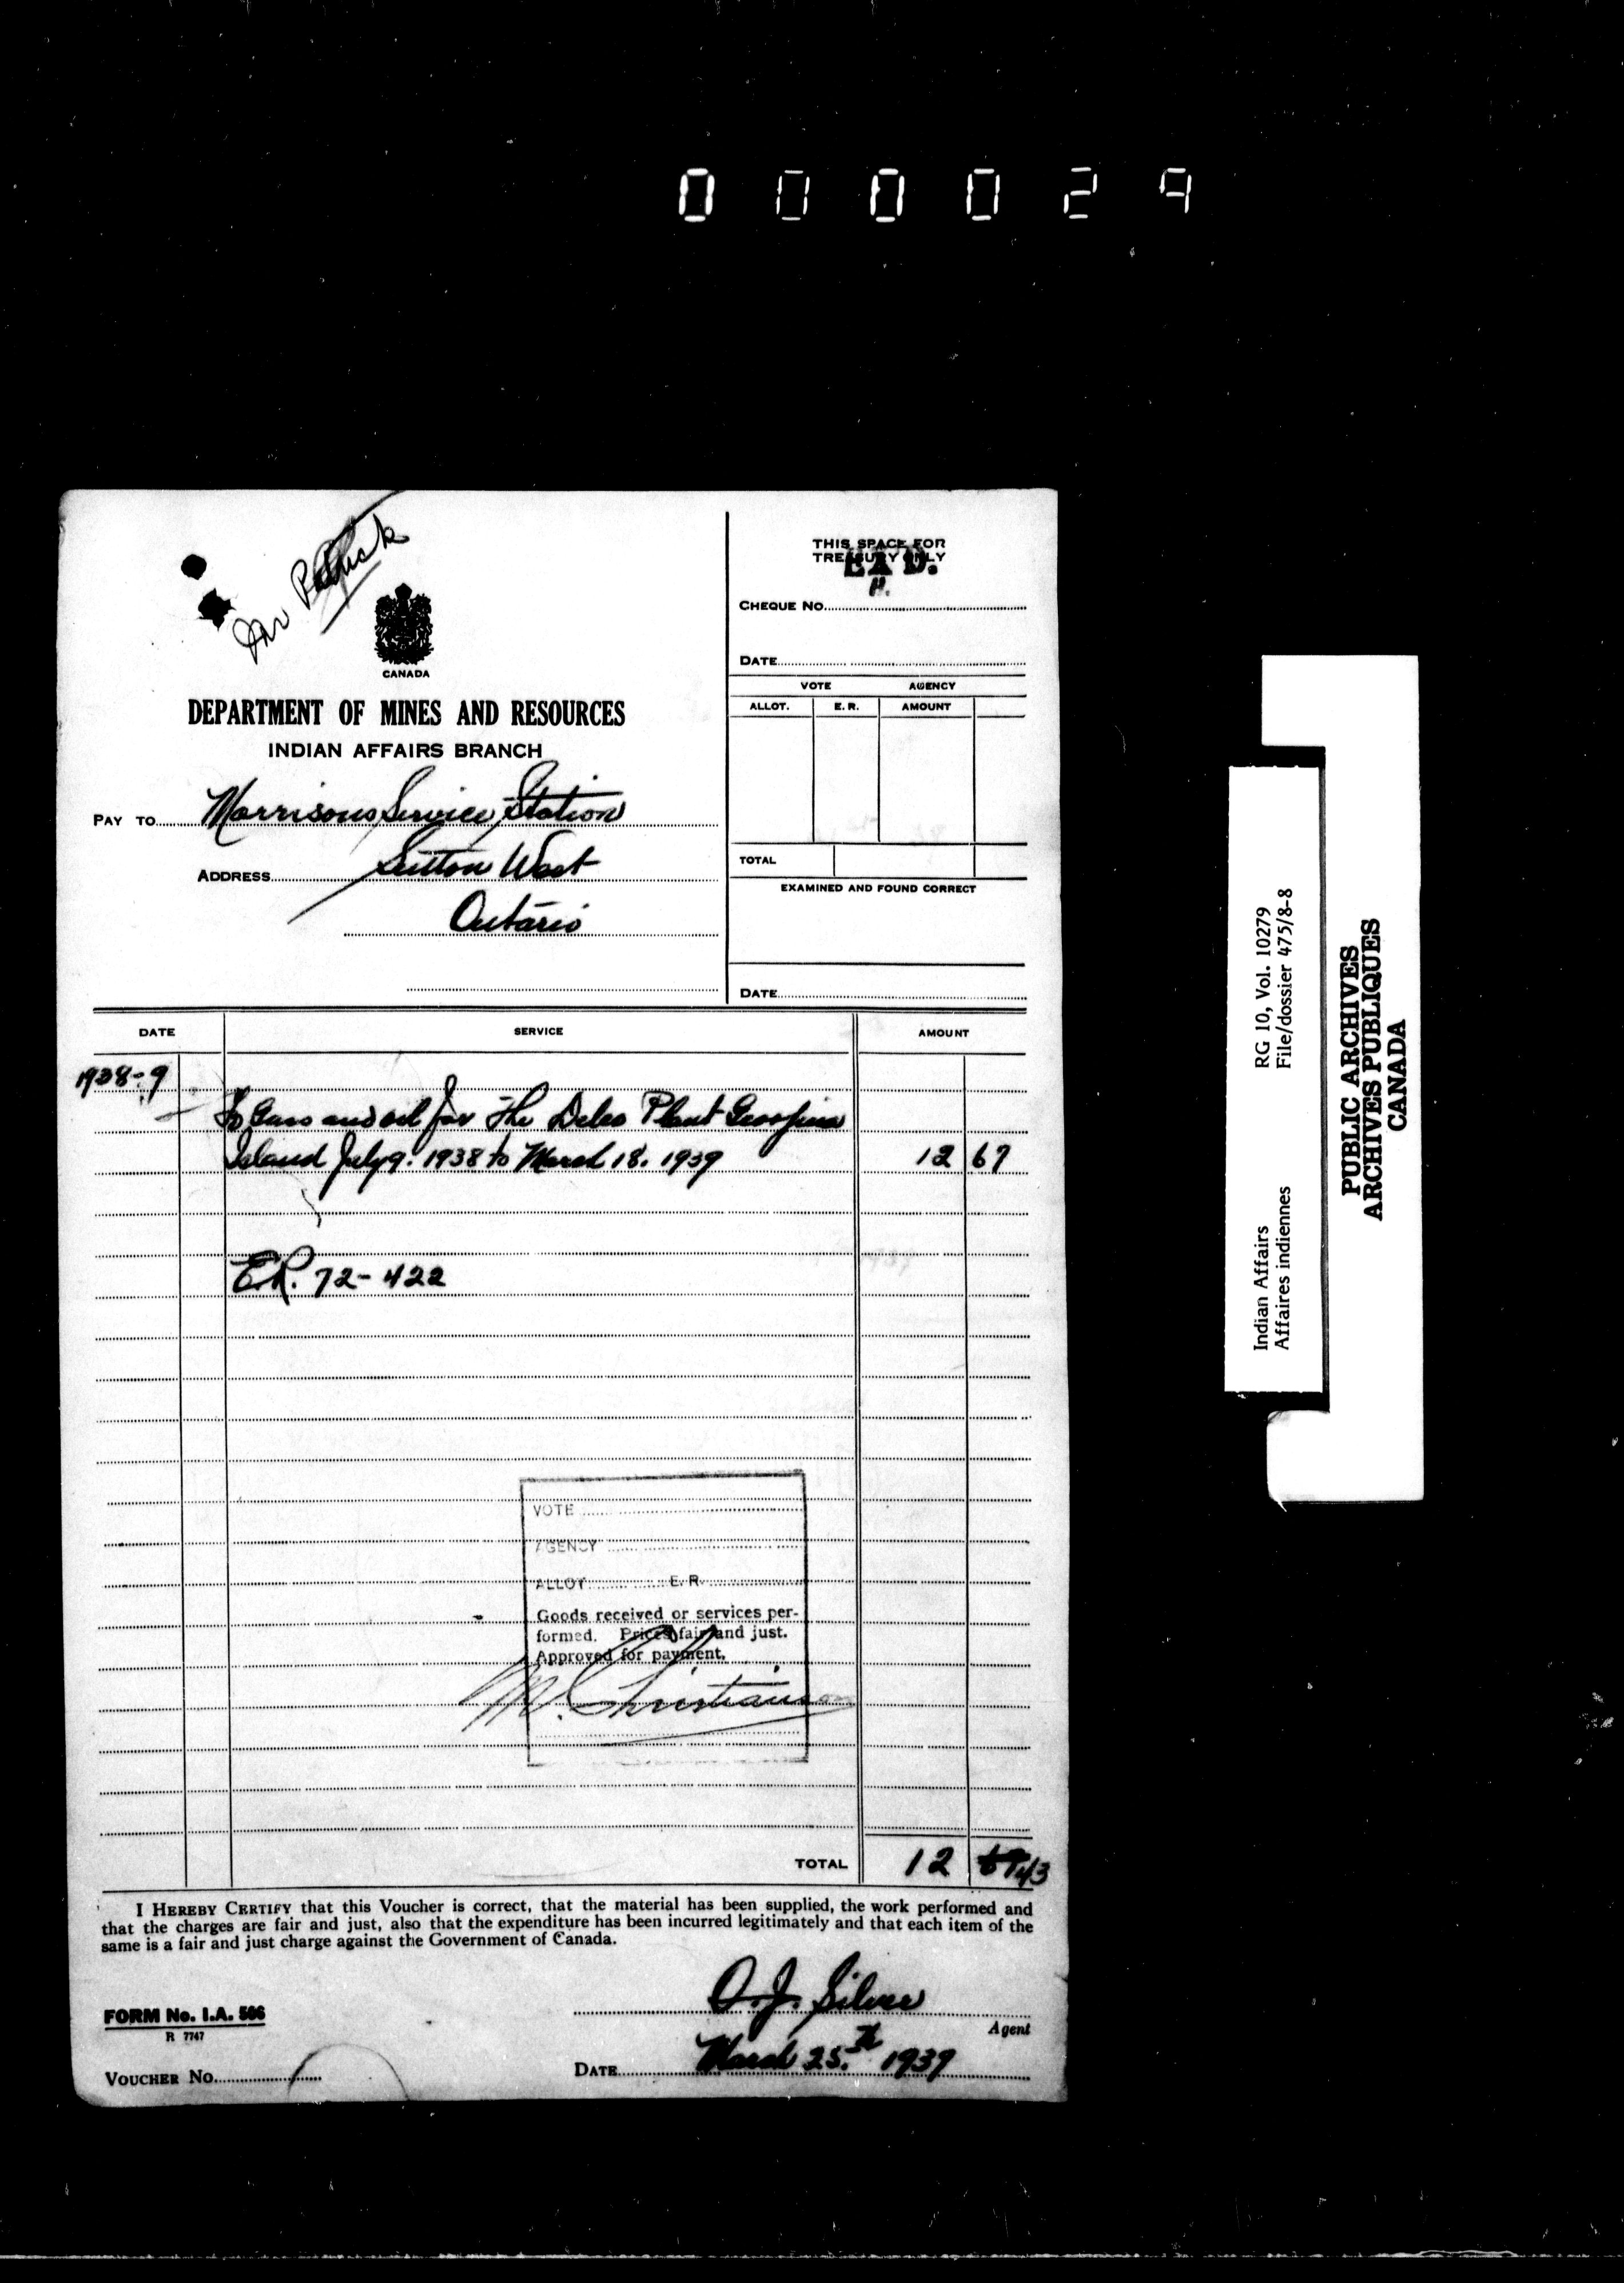 000029
Mr
CANADA
DEPARTMENT OF MINES AND RESOURCES
INDIAN AFFAIRS BRANCH
PAY TO Morrisons Service Station
ADDRESS Sutton West
Ontario
THIS SPACE FOR
TREASURY ONLY
CHEQUE NO.
DATE
VOTE AGENCY
ALLOT. E. R. AMOUNT
TOTAL
EXAMINED AND FOUND CORRECT
DATE
DATE SERVICE AMOUNT
1938-9
To Gass and oil for The Delco Plant Georgina
Island July 9. 1938 to March 18. 1939 12 67
E.R. 72-422
VOTE
AGENCY
ALLOT E. R.
Goods received or services per-
formed. Prices fair and just.
Approved for payment.
M. Christianson
TOTAL 12 67 43
I HEREBY CERTIFY that this Voucher is correct, that the material has been supplied, the work performed and
that the charges are fair and just, also that the expenditure has been incurred legitimately and that each item of the
same is a fair and just charge against the Government of Canada.
A.J. Silver
Agent
FORM No. I.A. 506
R 7747
VOUCHER No.
DATE March 25.th 1939
Indian Affairs RG 10, Vol. 10279
Affaires indiennes File/dossier 475/8-8
PUBLIC ARCHIVES
ARCHIVES PUBLIQUES
CANADA